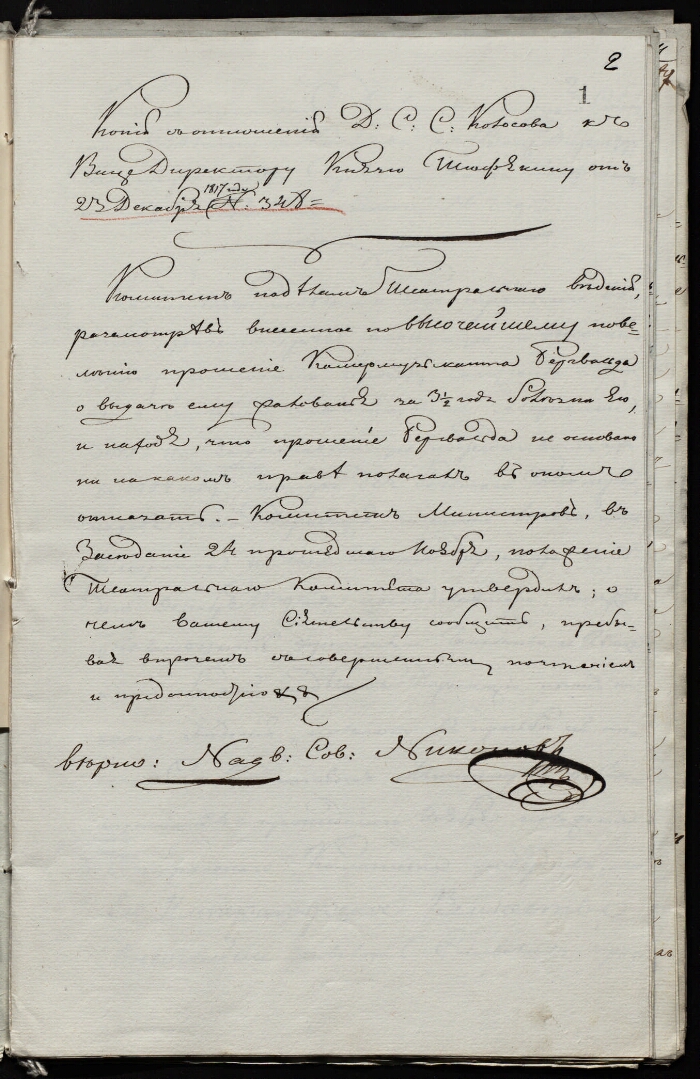 2
1
Копія съ отношенія Д: С: С: Колосова къ
Вице Директору Князю Тюфякину отъ
1817 году
23 Декабря N: 348=
Комитетъ по дѣламъ Театральнаго вѣденія,
разсмотрѣвъ внесенное по высочейшему пове-
лѣнію прошеніе Камермузыканта Бервальда
о выдачѣ ему жалованья за 3½ года
и находя, что прошеніе Бервальда не основано
ни на какомъ правѣ полагалъ въ ономъ
отказать. – Комитетъ Министровъ, въ
Заседаніе 24 прошедшаго Ноября, положеніе
Театральнаго Комитета утвердилъ; о
чемъ Вашему Сіятельству сообщить, пребы-
вая впрочемъ съ совершеннымъ почтеніемъ
и преданностію
вѣрно: Надв: Сов: Никоновъ